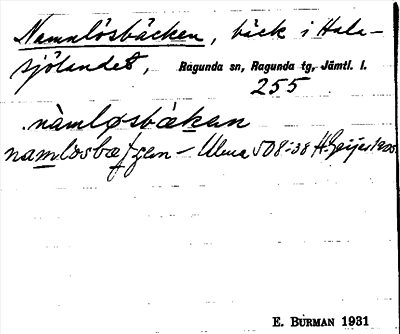 Namnlösbäcken, bäck i Hala-
sjölandet, Ragunda sn, Ragunda tg, Jämtl. l.
255
nàmløsbækan
namlosbæ - Ulma 508:38 H. Geijer 1908
E. BURMAN 1931